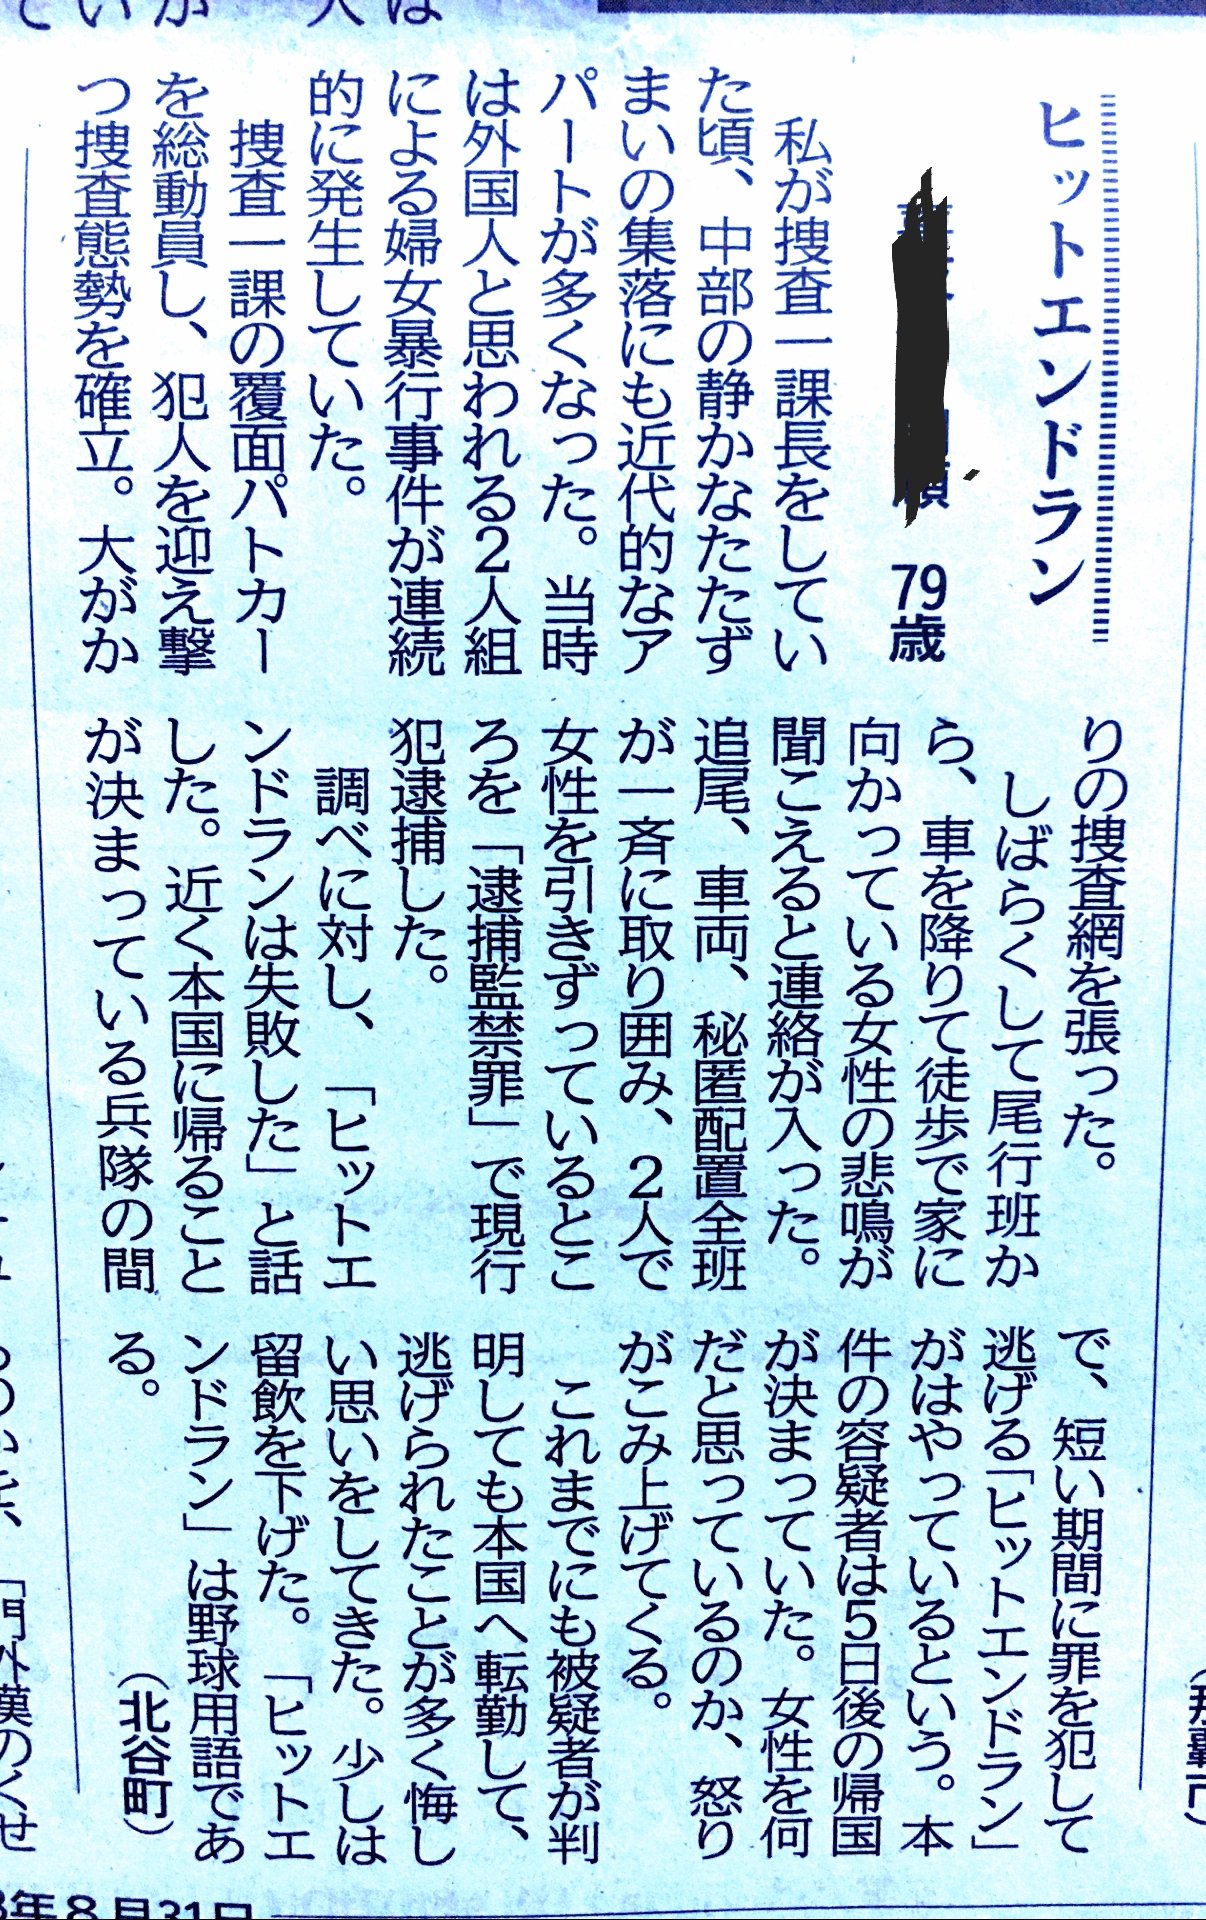 ヒットエンドラン
79歳
私が捜査一課長をしてい
た頃、中部の静かなたたず
まいの集落にも近代的なア
パートが多くなった。当時
は外国人と思われる2人組
による婦女暴行事件が連続
的に発生していた。
捜査一課の覆面パトカー
を総動員し、犯人を迎え撃
つ捜査態勢を確立。大がか
りの捜査網を張った。
しばらくして尾行班か
ら、車を降りて徒歩で家に
向かっている女性の悲鳴が
聞こえると連絡が入った。
追尾、車両、秘匿配置全班
が一斉に取り囲み、2人で
女性を引きずっているとこ
ろを「逮捕監禁罪」で現行
犯逮捕した。
調べに対し、「ヒットエ
ンドランは失敗した」と話
した。近く本国に帰ること
が決まっている兵隊の間
で、短い期間に罪を犯して
逃げる「ヒットエンドラン」
がはやっているという。本
件の容疑者は5日後の帰国
が決まっていた。女性を何
だと思っているのか、怒り
がこみ上げてくる。
これまでにも被疑者が判
明しても本国へ転勤して、
逃げられたことが多く悔し
い思いをしてきた。少しは
留飲を下げた。「ヒットエ
ンドラン」は野球用語であ
る。
（北谷町）
年8月31日